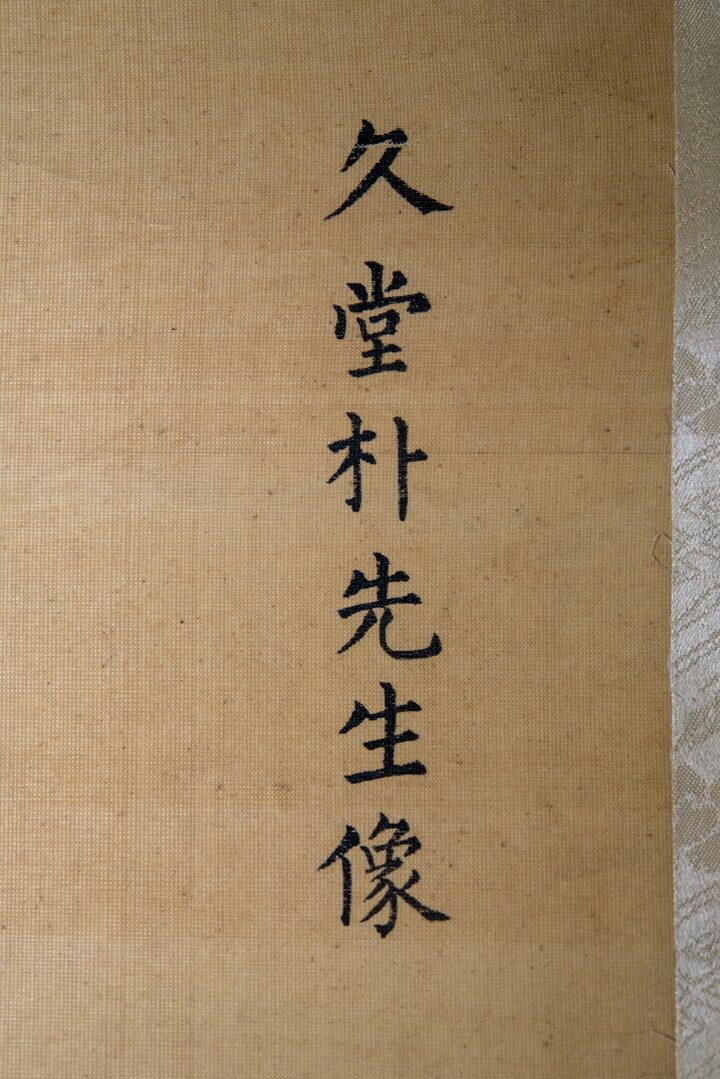 久堂朴先生像